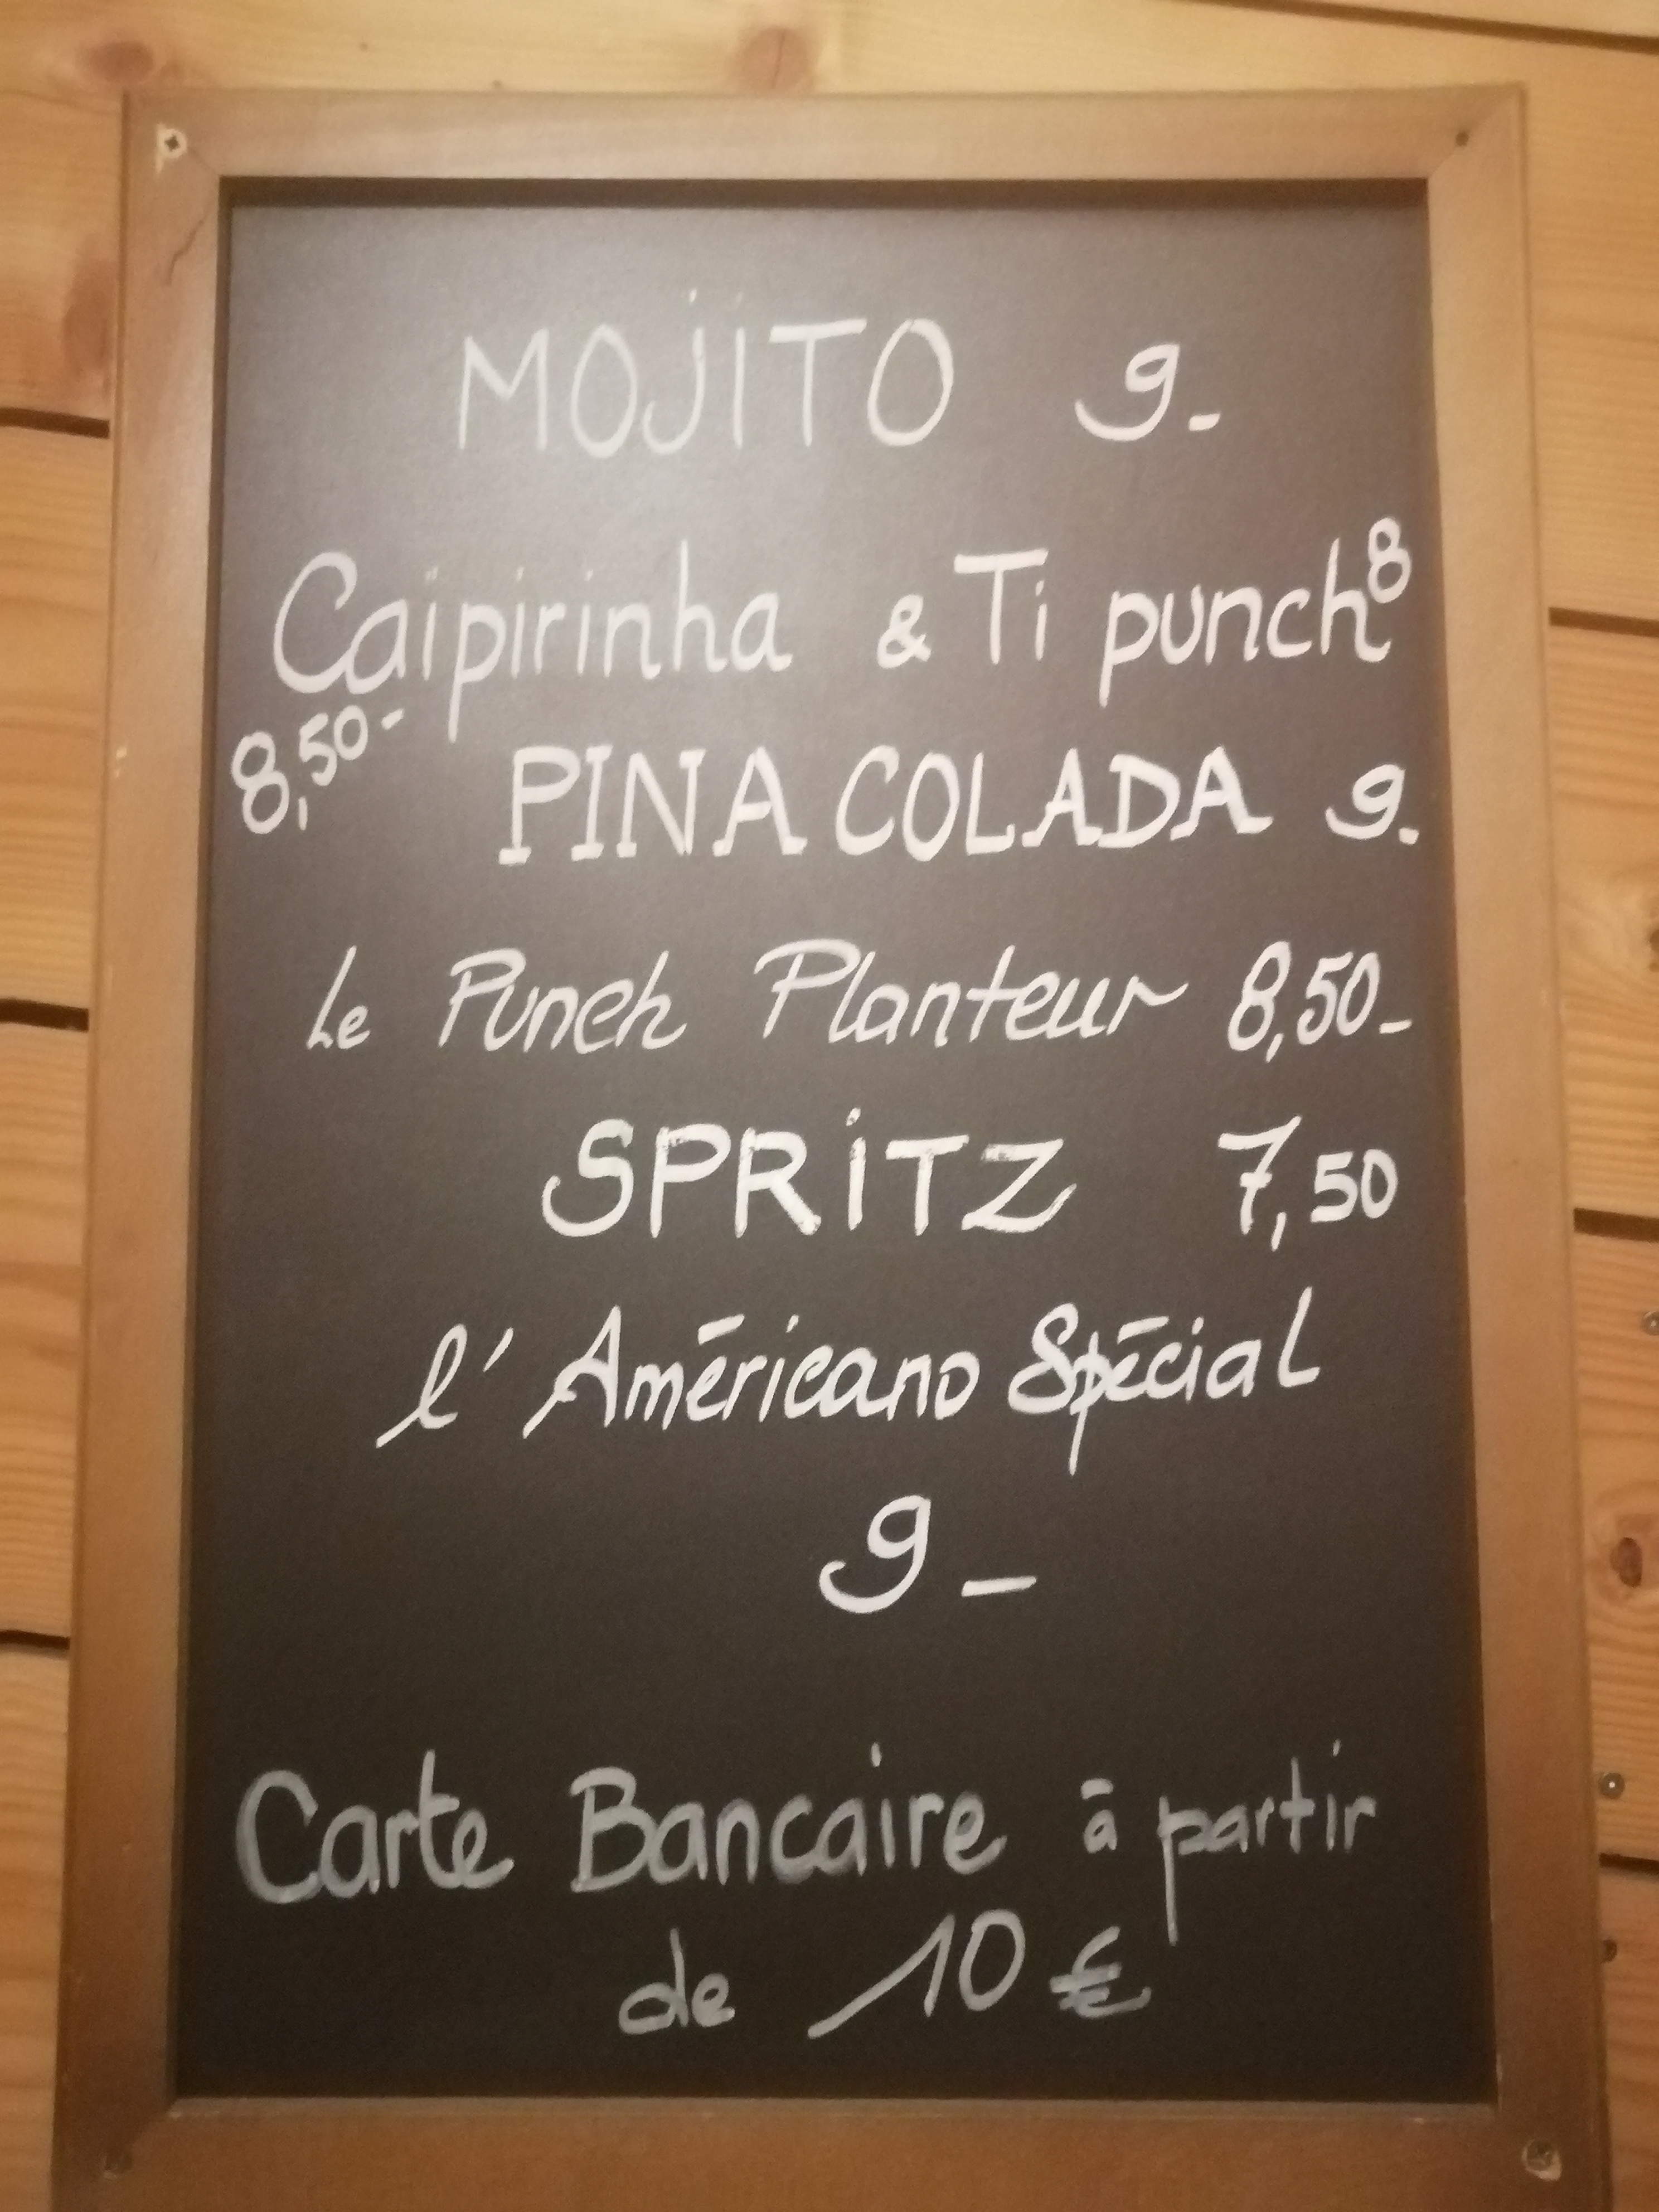 MOJITO 9-
Caïpirinha & Ti punch 8
8,50-
PINA COLADA 9.
Le Punch Planteur 8,50-
SPRITZ 7,50
l'Américano Spécial
9-
Carte Bancaire à partir
de 10 €